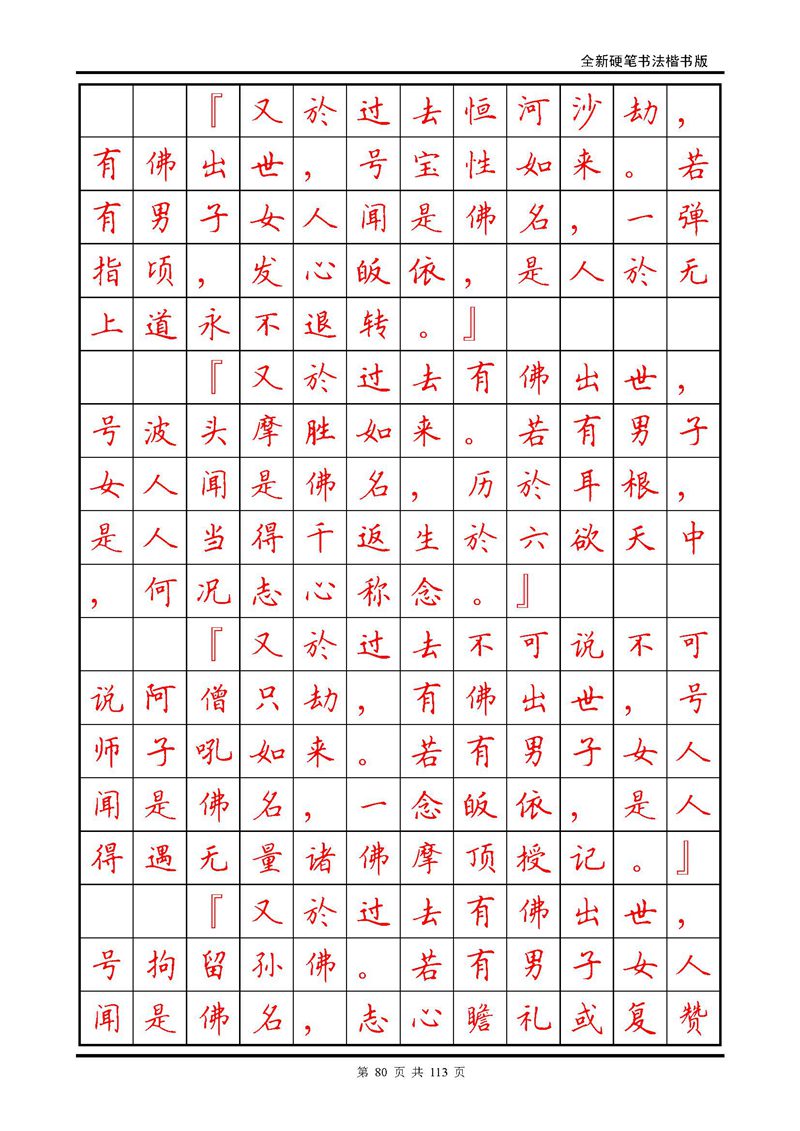 全新硬笔书法楷书版
『又於过去恒河沙劫，
有佛出世，号宝性如来。若
有男子女人闻是佛名，一弹
指顷，发心皈依，是人於无
上道永不退转。』
『又於过去有佛出世，
号波头摩胜如来。若有男子
女人闻是佛名，历於耳根，
是人当得千返生於六欲天中
，何况志心称念。』
『又於过去不可说不可
说阿僧只劫，有佛出世，号
师子吼如来。若有男子女人
闻是佛名，一念皈依，是人
得遇无量诸佛摩顶授记。』
『又於过去有佛出世，
号拘留孙佛。若有男子女人
闻是佛名，志心瞻礼或复赞
第 80 页 共 113 页